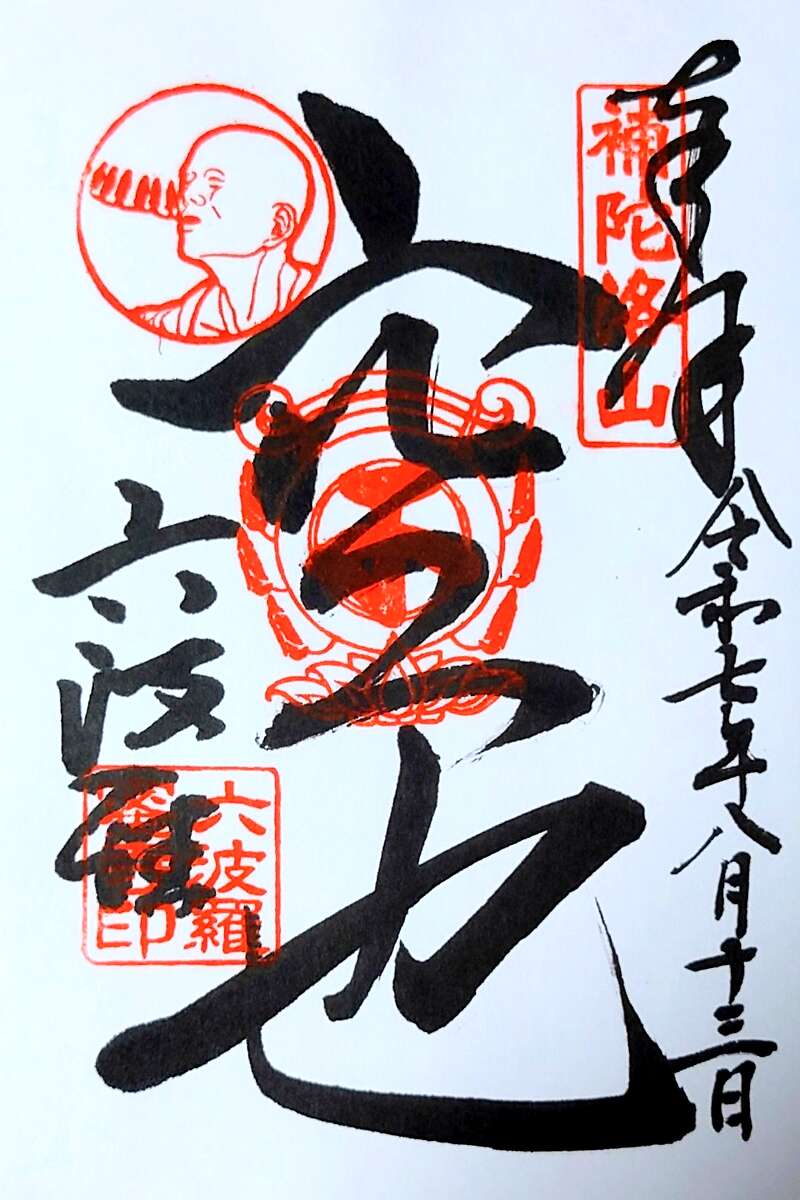 奉拝
令和七年八月十三日
補陀洛山
空也
六波羅
六波羅
印